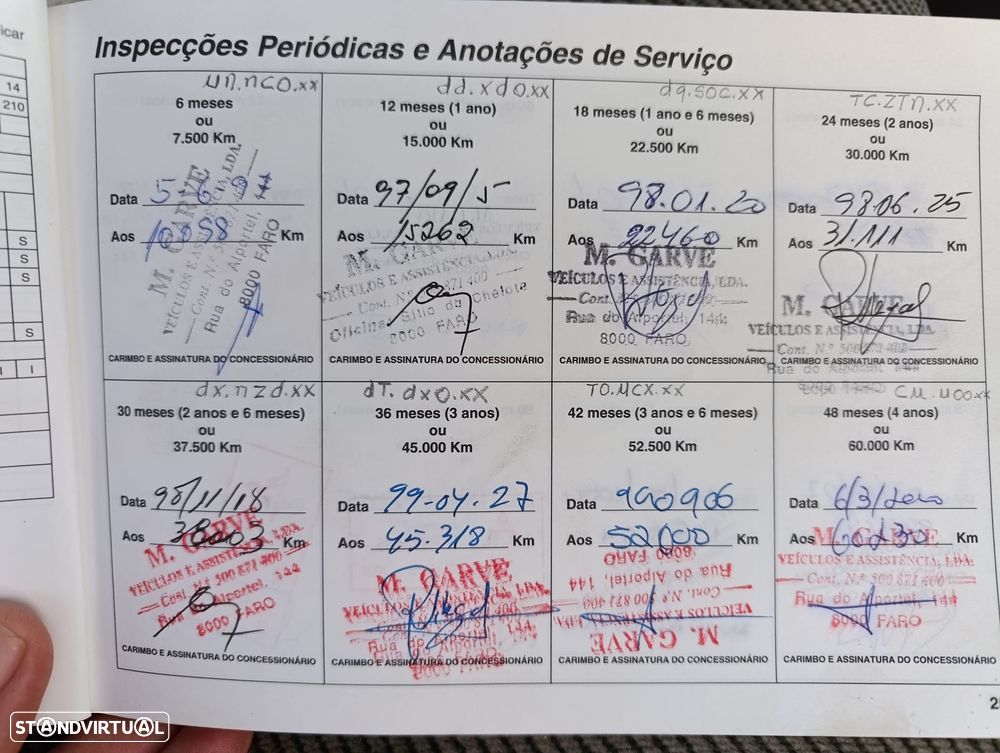 ficar
14
210
S
S
S
S
I I
Inspecções Periódicas e Anotações de Serviço
6 meses
ou
7.500 Km
Data
Aos 10098 Km
M. GARVE
VEÍCULOS E ASSISTÊNCIA, LDA.
Cont. N.º 500 871 400
Rua do Alportel, 144
8000 FARO
CARIMBO E ASSINATURA DO CONCESSIONÁRIO
dd.xdo.xx
12 meses (1 ano)
ou
15.000 Km
Data 97/09/5
Aos 15262 Km
M. GARVE
VEÍCULOS E ASSISTÊNCIA, LDA.
Cont. N.º 500 871 400
8000 FARO
CARIMBO E ASSINATURA DO CONCESSIONÁRIO
dq.soc.xx
18 meses (1 ano e 6 meses)
ou
22.500 Km
Data 98.01.20
Aos 22460 Km
M. GARVE
VEÍCULOS E ASSISTÊNCIA, LDA.
Rua do Alportel, 144
8000 FARO
CARIMBO E ASSINATURA DO CONCESSIONÁRIO
TC.ZTN.xx
24 meses (2 anos)
ou
30.000 Km
Data 98.06.25
Aos 31.111 Km
M. GARVE
VEÍCULOS E ASSISTÊNCIA, LDA.
Cont. N.º 500 871 400
Rua do Alportel, 144
8000 FARO
CARIMBO E ASSINATURA DO CONCESSIONÁRIO
dx.nzd.xx
30 meses (2 anos e 6 meses)
ou
37.500 Km
Data 98/11/18
Aos Km
M. GARVE
VEÍCULOS E ASSISTÊNCIA, LDA.
Cont. N.º 500 871 400
Rua do Alportel, 144
8000 FARO
CARIMBO E ASSINATURA DO CONCESSIONÁRIO
dT.dxo.xx
36 meses (3 anos)
ou
45.000 Km
Data 99-04-27
Aos 45.318 Km
M. GARVE
VEÍCULOS E ASSISTÊNCIA, LDA.
Rua do Alportel, 144
8000 FARO
CARIMBO E ASSINATURA DO CONCESSIONÁRIO
TO.MCX.xx
42 meses (3 anos e 6 meses)
ou
52.500 Km
Data 990906
Aos 52000 Km
M. GARVE
VEÍCULOS E ASSISTÊNCIA, LDA.
Cont. N.º 500 871 400
Rua do Alportel, 144
8000 FARO
CARIMBO E ASSINATURA DO CONCESSIONÁRIO
CM.MOO.xx
48 meses (4 anos)
ou
60.000 Km
Data 6/3/2000
Aos 60230 Km
M. GARVE
VEÍCULOS E ASSISTÊNCIA, LDA.
Cont. N.º 500 871 400
Rua do Alportel, 144
8000 FARO
CARIMBO E ASSINATURA DO CONCESSIONÁRIO
STANDVIRTUAL